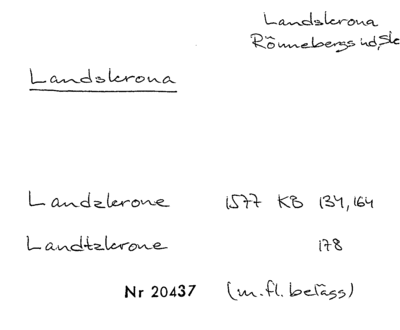 Landskrona
Rönnebergs hd, Sk
Landskrona
Landzkrone 1577 KB 134, 164
Landtzkrone 178
Nr 20437 (m.fl. belägg)